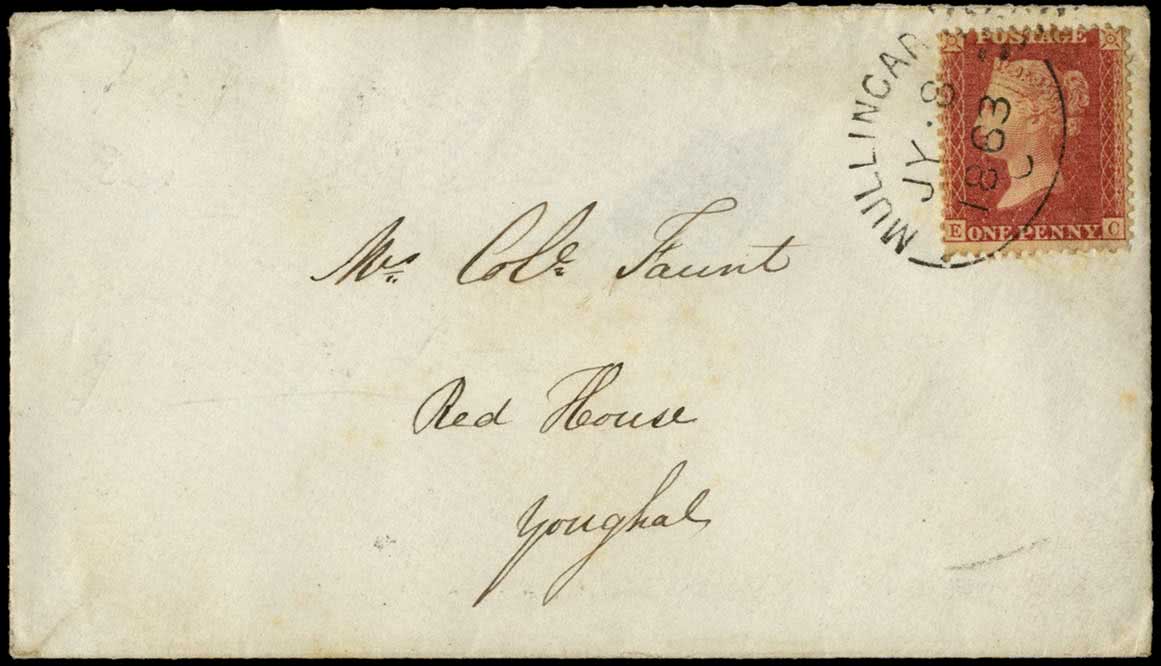 POSTAGE
MULLINGAR
JY 8
1863
C
E ONE PENNY C
Mrs Coll. Faunt
Red House
Youghal